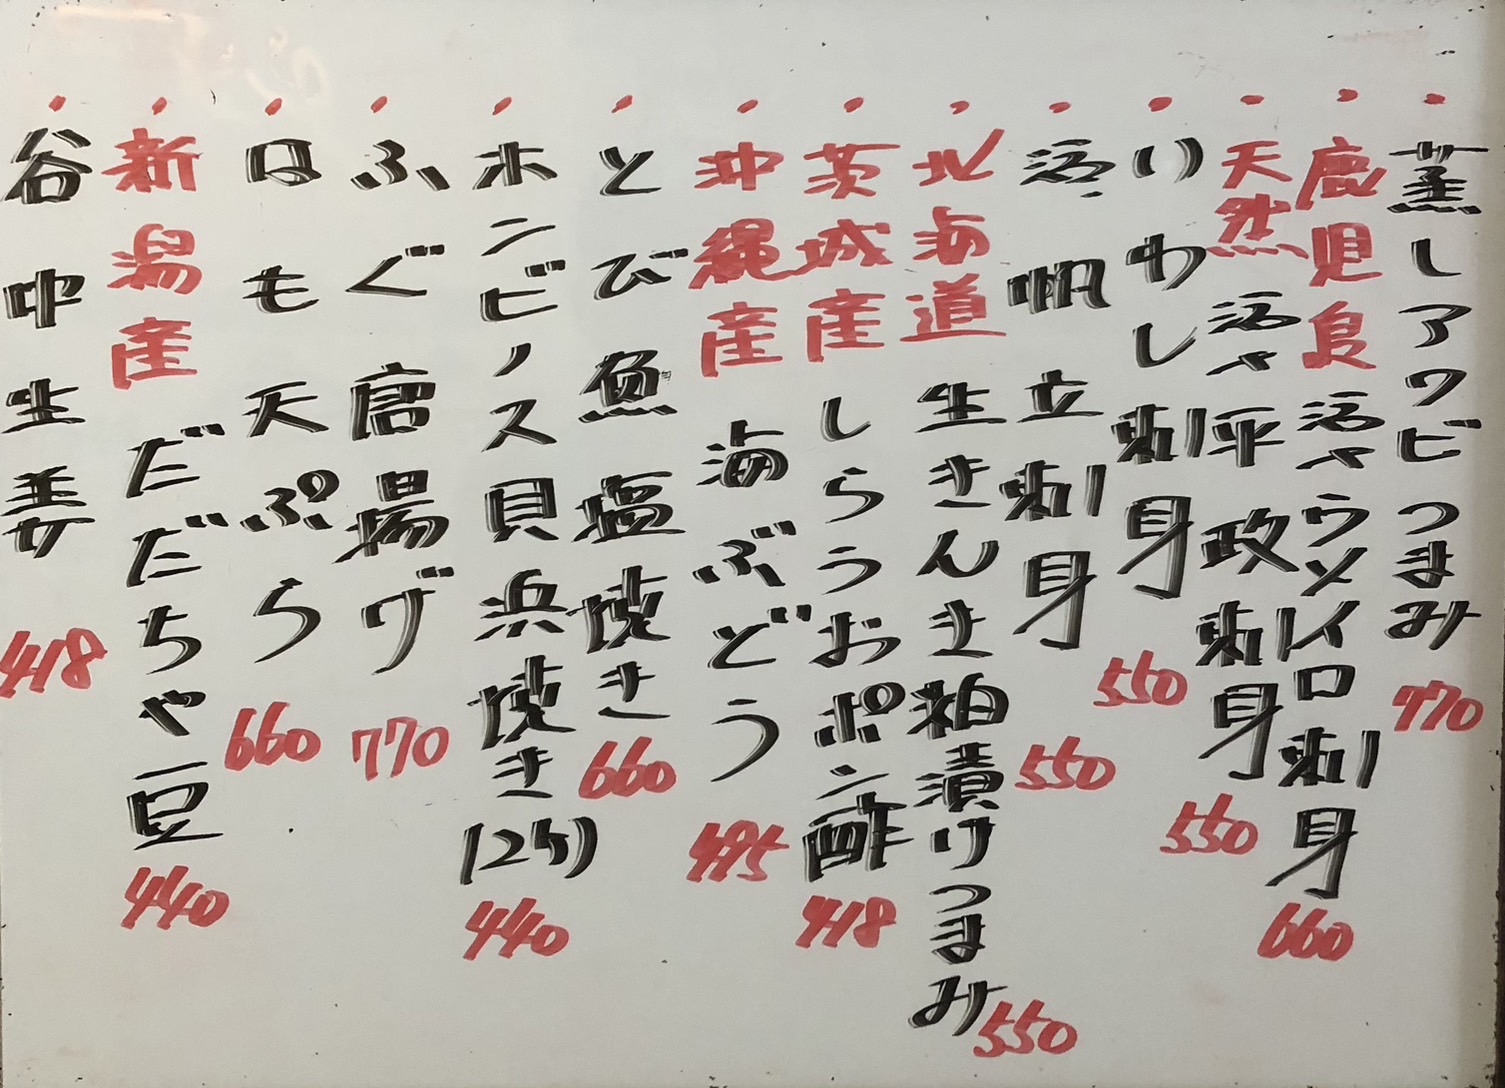 ・蒸しアワビつまみ 770
・鹿児島 活〆ウメイロ刺身 660
・天然 活〆平政刺身 550
・いわし刺身 550
・活 帆立刺身 550
・北海道 生きんき粕漬けつまみ 550
・茨城産 しらうおポン酢 418
・沖縄産 海ぶどう 495
・とび魚塩焼き 660
・ホンビノス貝浜焼き(2ケ) 440
・ふぐ唐揚げ 770
・はも天ぷら 660
・新潟産 だだちゃ豆 440
・谷中生姜 418